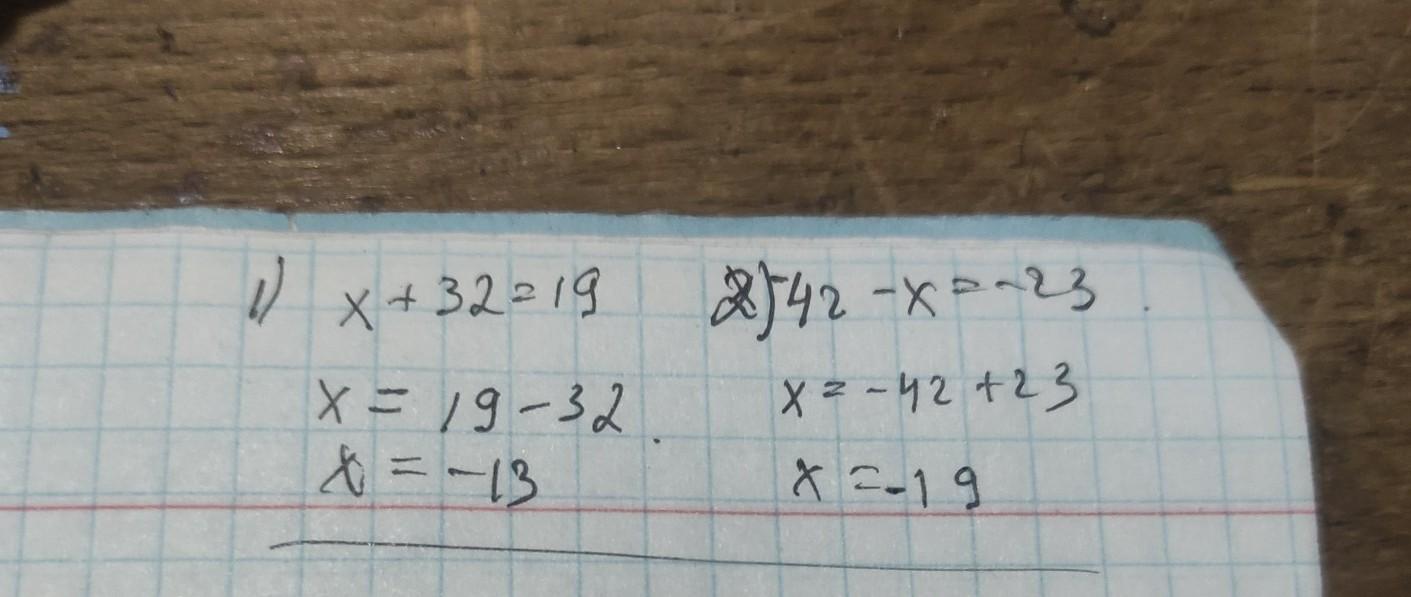 1) x + 32 = 19
x = 19 - 32.
x = -13
2) -42 - x = -23.
x = -42 + 23
x = -19